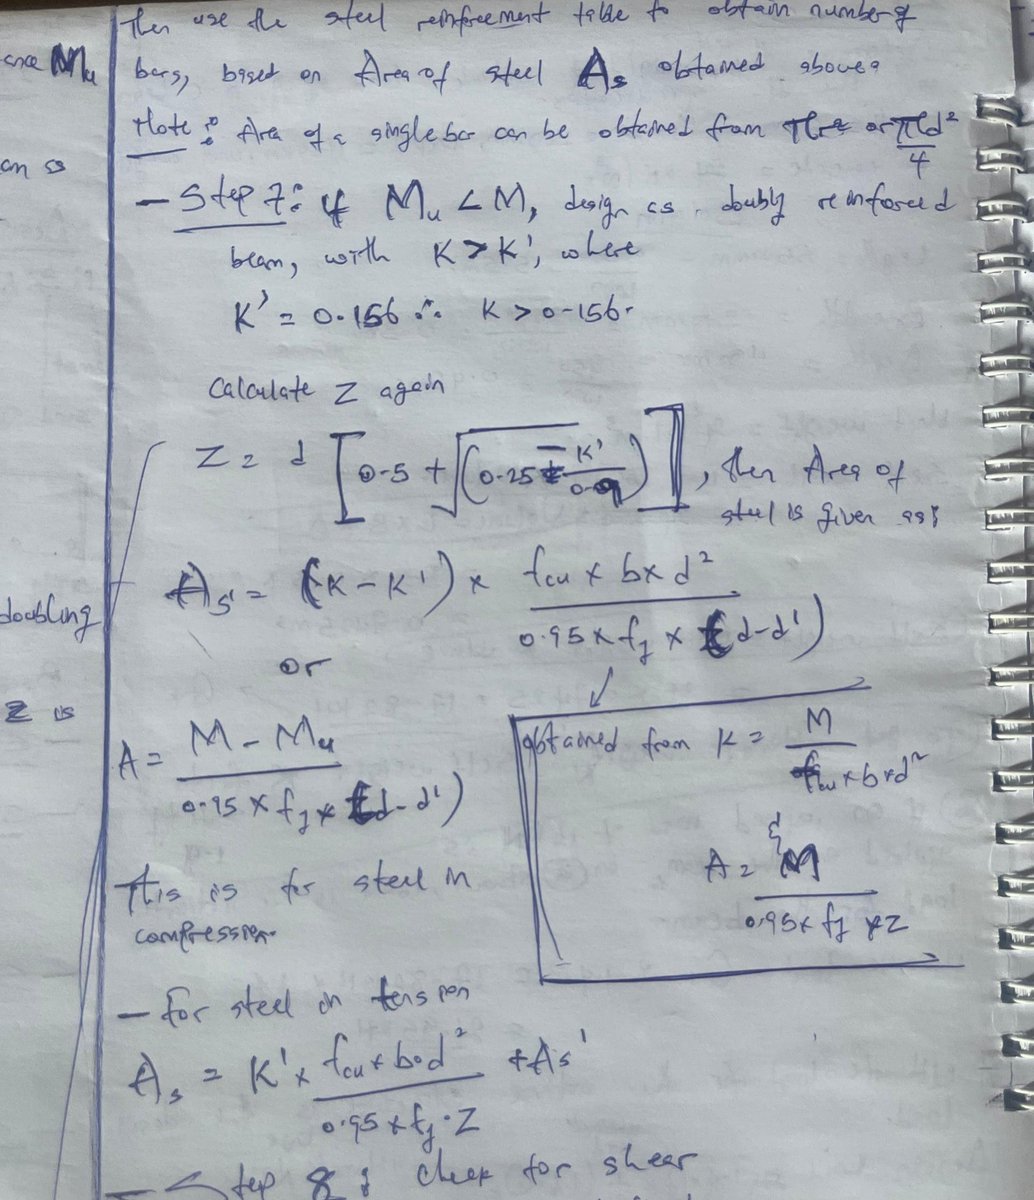 then use the steel reinforcement table to obtain number of
ance Mu
bars, based on Area of steel As obtained above.
Note: Area of a single bar can be obtained from πr² or πd²/4
an is
- Step 7: if Mu < M, design as doubly reinforced
beam, with K > K', where
K' = 0.156 ∴ K > 0.156.
Calculate Z again
Z = d [0.5 + √(0.25 - K'/0.9)], then Area of
steel is given as;
As' = (K - K') × fcu × b × d² / 0.95 × fy × (d - d')
doubling
or
Z is
A = M - Mu / 0.95 × fy × (d - d')
obtained from K = M / fcu × b × d²
&
A = M / 0.95 × fy × Z
This is for steel in
compression.
- For steel in tension
As = K' × fcu × b · d² / 0.95 × fy · Z + As'
- Step 8: check for shear